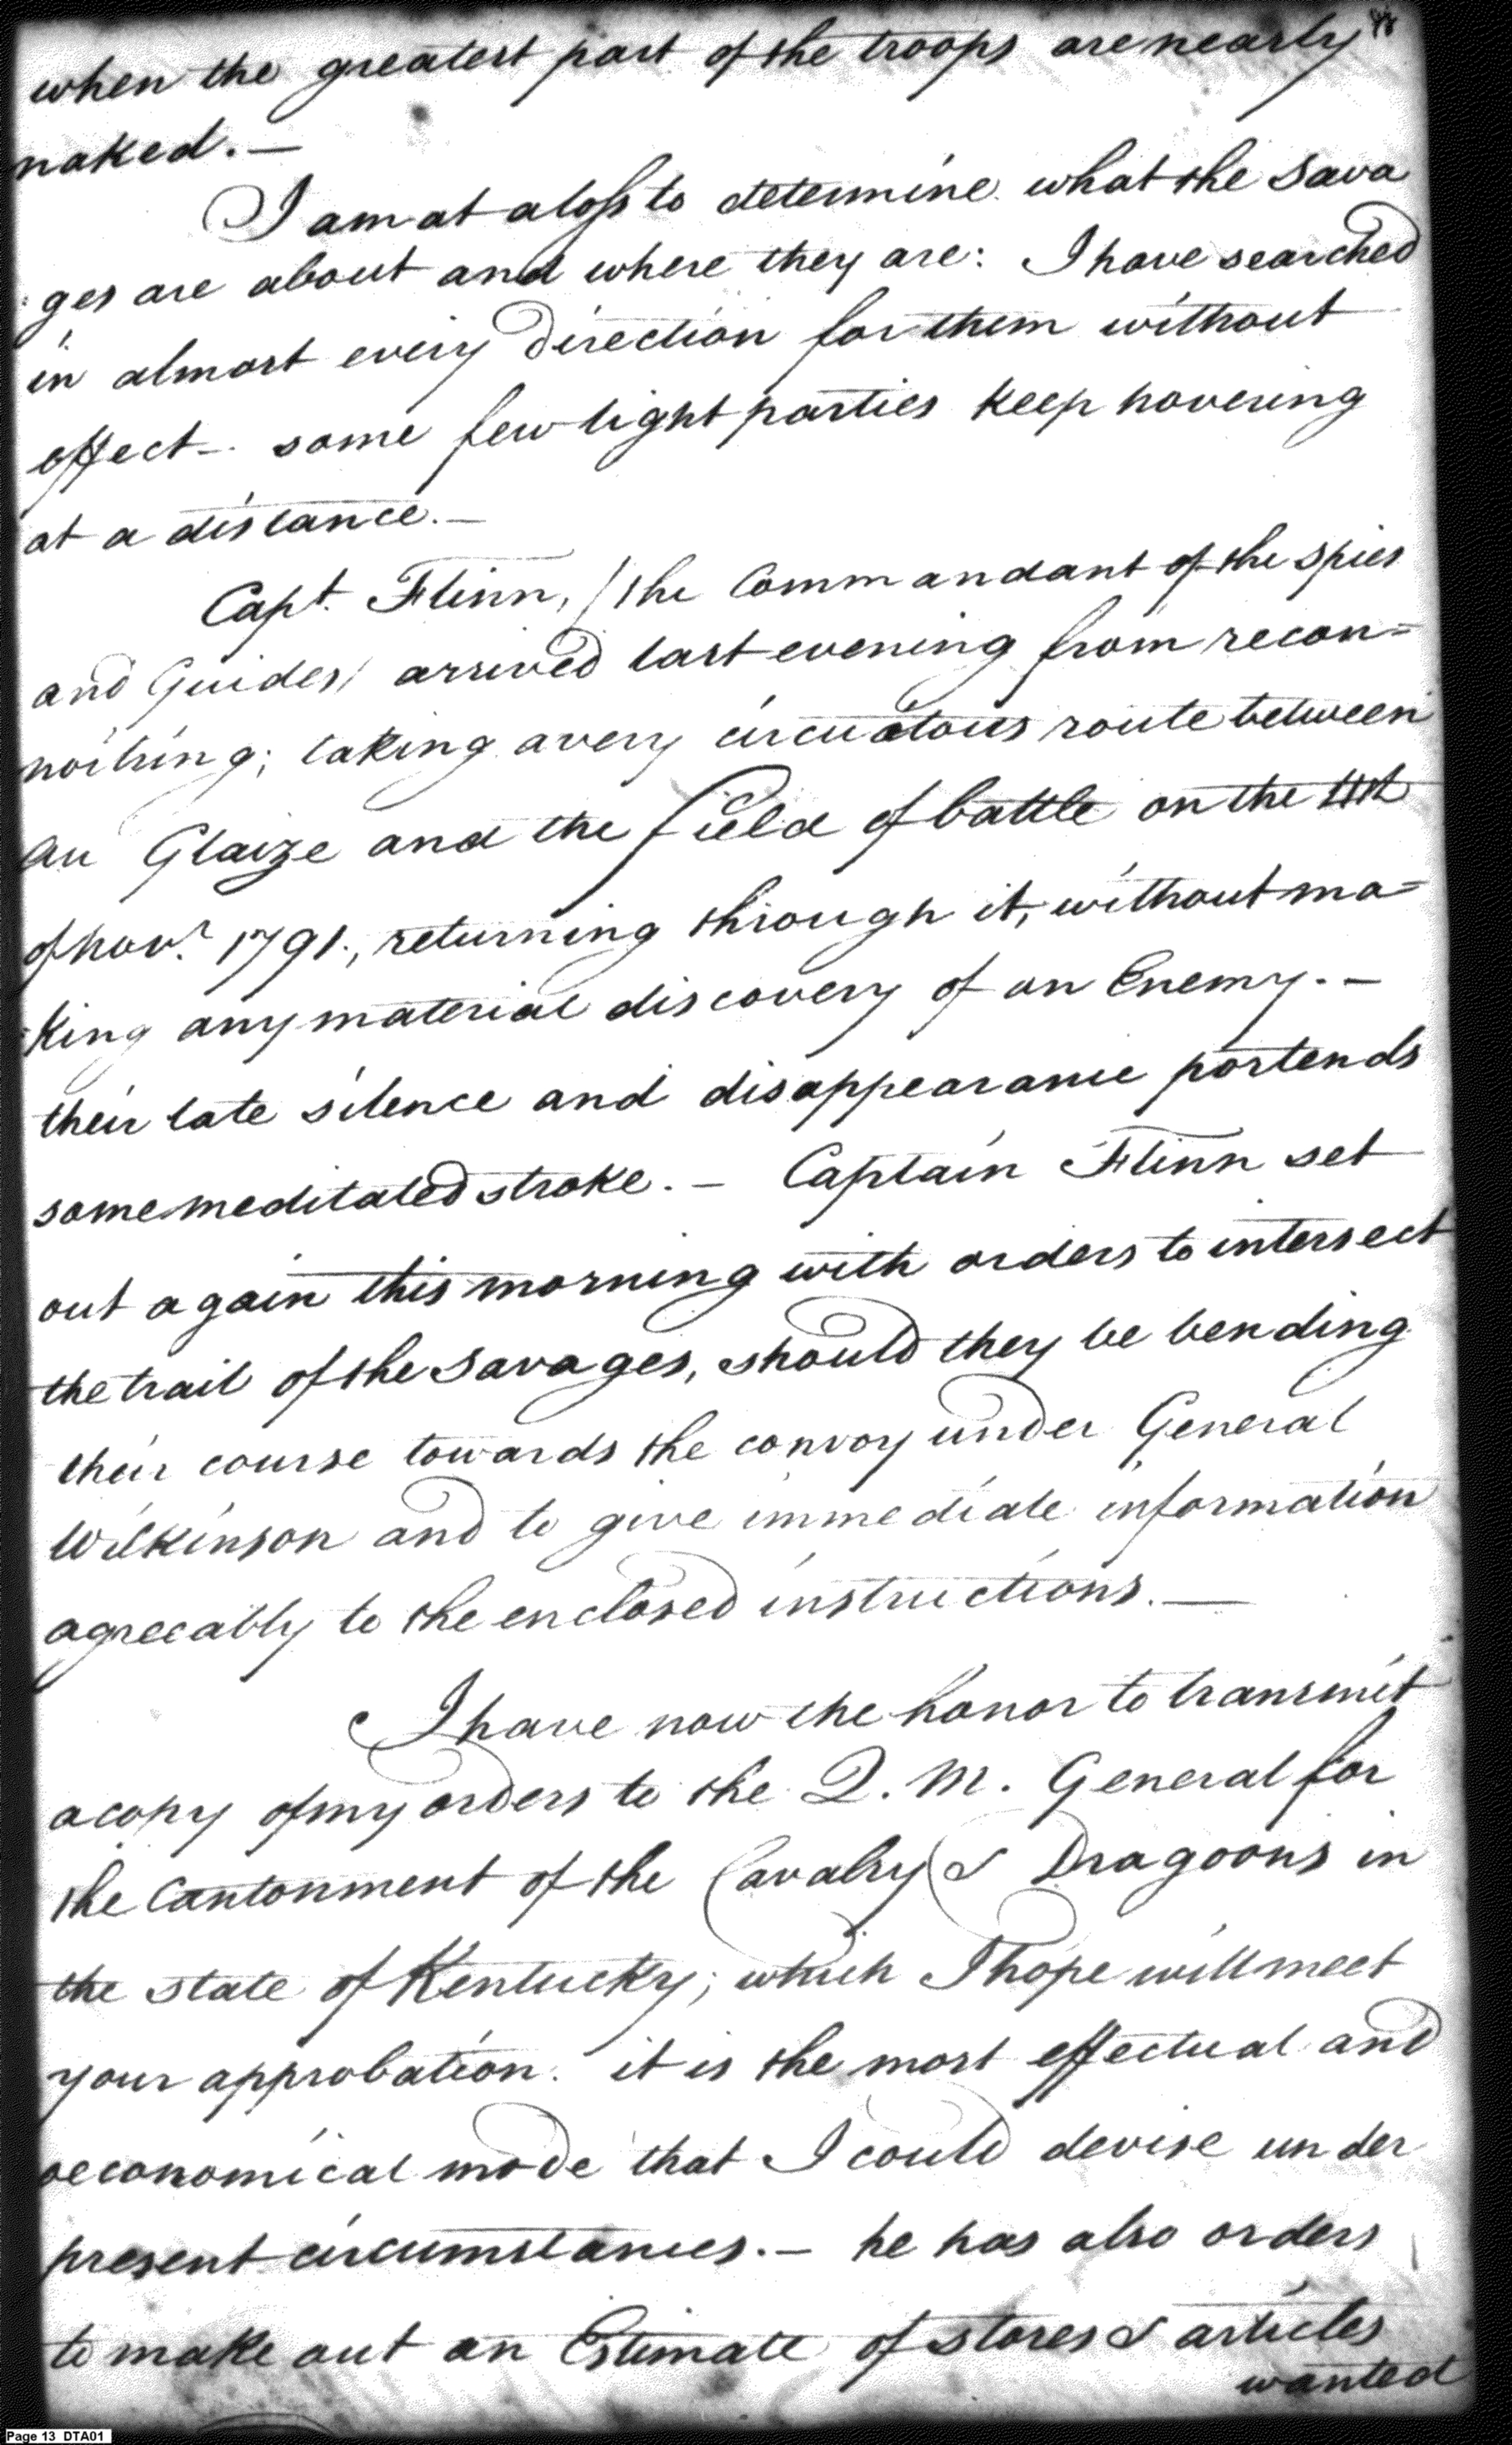 when the greatest part of the troops are nearly
naked. —
I am at a loss to determine what the Sava
: ges are about and where they are: I have searched
in almost every direction for them without
effect -. some few light parties keep hovering
at a distance. —
Capt. Flinn, / the Commandant of the spies
and Guides / arrived last evening from recon=
noitring; taking a very circuitous route between
au Glaize and the field of battle on the 4th
of novr. 1791., returning through it, without ma=
=king any material discovery of an Enemy. —
their late silence and disappearance portends
some meditated stroke. — Captain Flinn set
out again this morning with orders to intersect
the trail of the Savages, should they be bending
their course towards the convoy under General
Wilkinson and to give immediate information
agreeably to the enclosed instructions. —
I have now the honor to transmit
a copy of my orders to the Q. M. General for
the Cantonment of the Cavalry & Dragoons in
the state of Kentucky; which I hope will meet
your approbation. it is the most effectual and
oeconomical mode that I could devise under
present circumstances. — he has also orders
to make out an Estimate of stores & articles
wanted
Page 13 DTA01